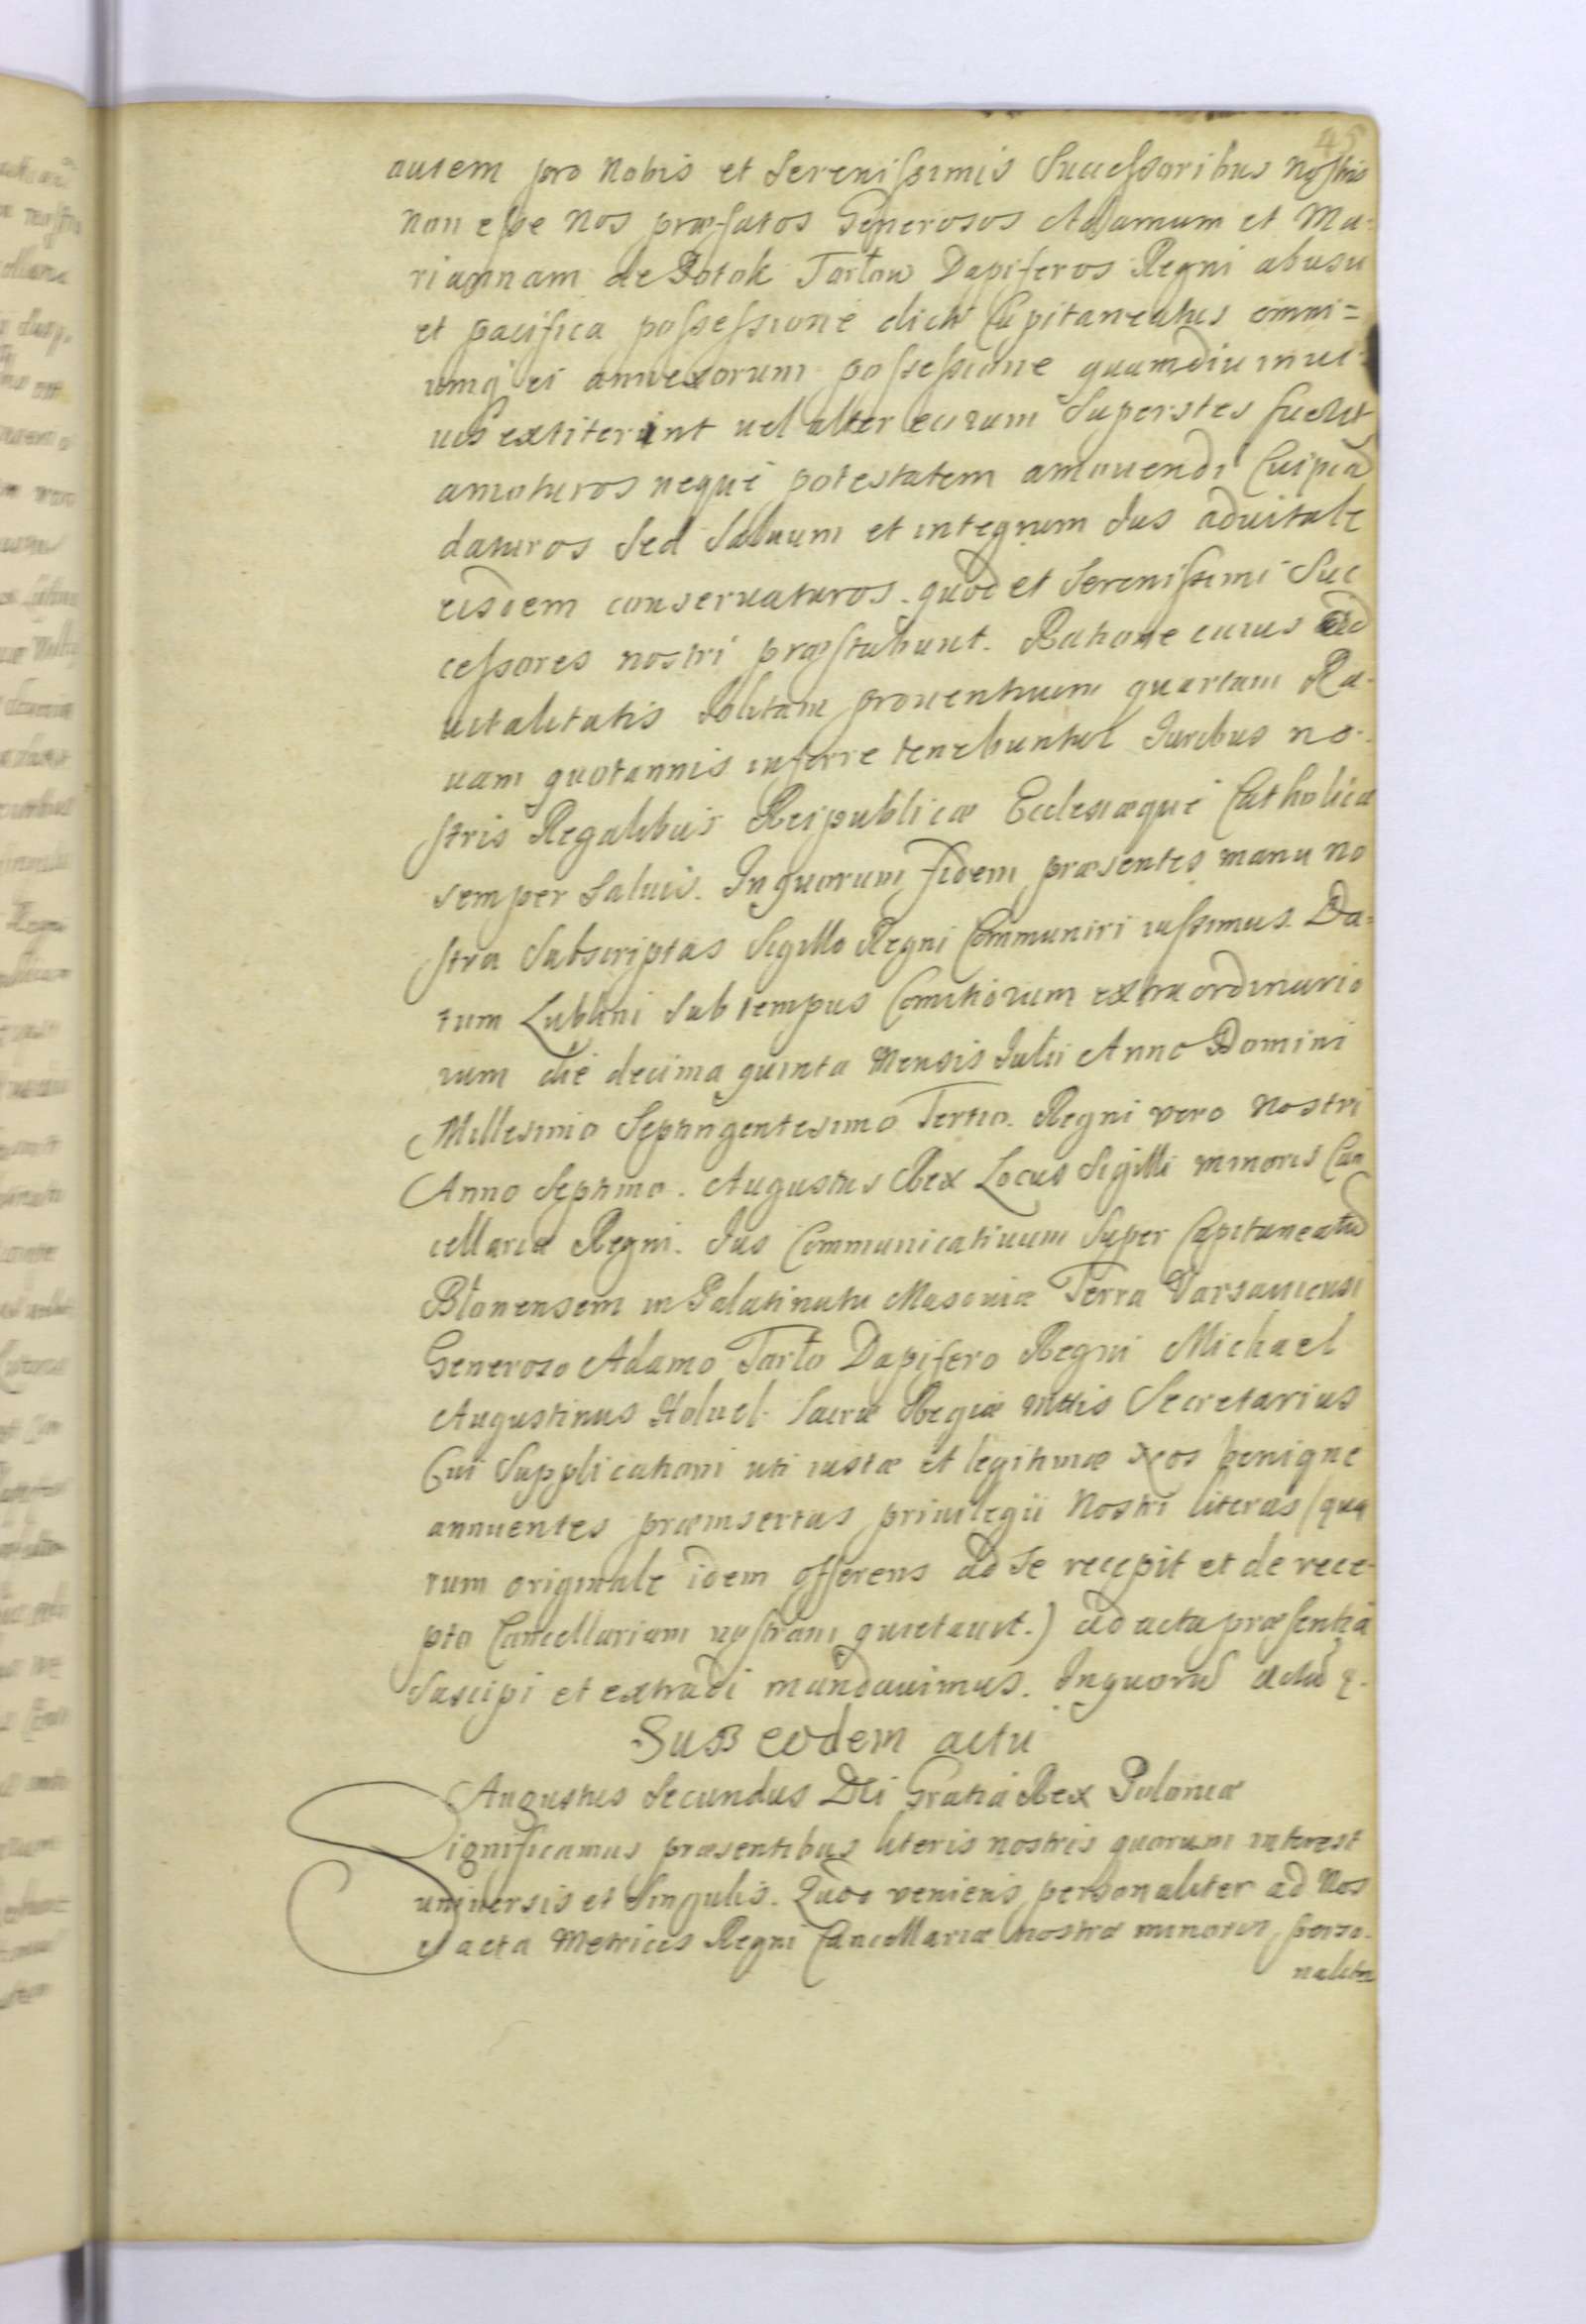 45
autem pro Nobis et Serenissimis Successoribus Nostris
non esse Nos præfatos Generosos Adamum et Ma-
riannam de Potok Tarłow Dapiferos Regni ab usu
et pacifica possessione dicti Capitaneatus omni=
umq ei annexorum possessione quamdiu in vi-
vis extiterint vel alter eorum Superstes fuerit
amoturos neque potestatem amovendi Cuipiã
daturos Sed Saluum et integrum Jus advitale
eisdem conservaturos. quod et Serenissimi Suc
cessores nostri præstabunt. Ratione cuius ad
vitalitatis solitam proventuum quartam Ra-
vam quotannis inferre tenebuntur Juribus no-
stris Regalibus Reipublicæ Ecclesiæque Catholicæ
semper Salvis. In quorum fidem præsentes manu no
stra Subscriptas Sigillo Regni Communiri iussimus. Da=
tum Lublini Sub tempus Comitiorum extraordinario
rum die decima quinta Mensis Julii Anno Domini
Millesimo Septingentesimo Tertio. Regni vero Nostri
Anno Septimo. Augustus Rex Locus Sigilli minoris Can
cellariæ Regni. Jus Communicativum Super Capitaneatũ
Błonensem in Palatinatu Masoviæ Terra Varsaviensi
Generoso Adamo Tarło Dapifero Regni Michael
Augustinus Sacræ Regiæ Mttis Secretarius
Cui Supplicationi uti iustæ et legitimæ benigne
annuentes præinsertas privilegii Nostri literas (qua
rum originale idem offerens ad se recepit et de rece-
pto Cancellariam nostram quietavit.) ad acta præsentia
Suscipi et extradi mandavimus. In quorũ
Sub eodem actu
Augustus Secundus Dei Gratia Rex Poloniæ
Significamus præsentibus literis nostris quorum interest
universis et Singulis. Quod veniens personaliter ad Nos
et acta Metrices Regni Cancellariæ nostræ minoris perso-
naliter